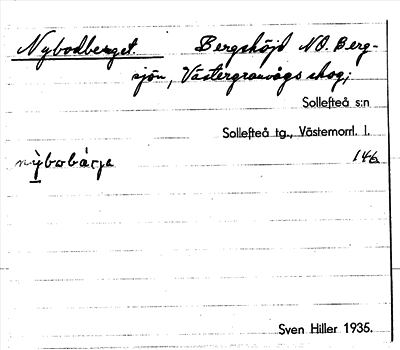 Nybodberget. Bergshöjd NO. Berg-
sjön, Västergranvågs skog;
Sollefteå s:n
Sollefteå tg., Västernorrl. l.
nỳbobárje 146
Sven Hiller 1935.